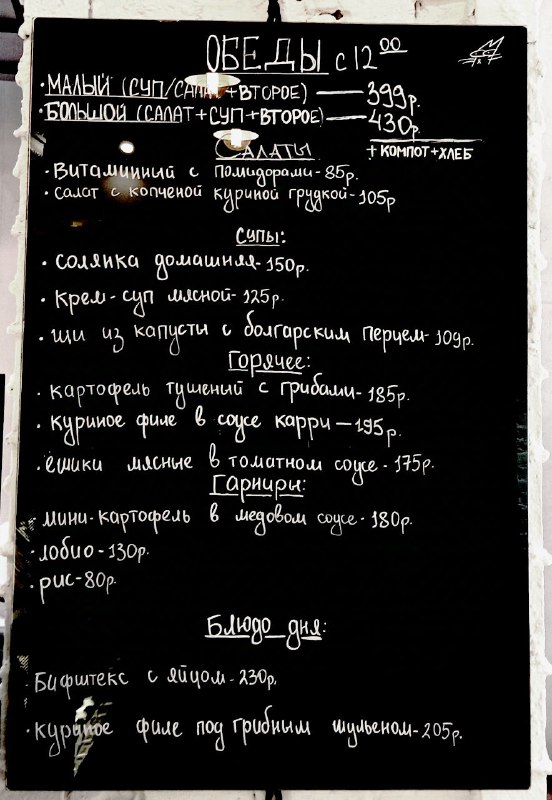 ОБЕДЫ с 12 00
·МАЛЫЙ (СУП/САЛАТ+ВТОРОЕ) — 399р.
·БОЛЬШОЙ (САЛАТ+СУП+ВТОРОЕ) — 430р.
+ КОМПОТ+ХЛЕБ
САЛАТЫ
·Витаминный с помидорами-85р.
·салат с копченой куриной грудкой-105р
супы:
·солянка домашняя-150р.
·крем-суп мясной-125р.
·щи из капусты с болгарским перцем-109р.
Горячее:
·картофель тушеный с грибами-185р.
·куриное филе в соусе карри—195р.
·ёшики мясные в томатном соусе-175р.
Гарниры:
·мини-картофель в медовом соусе-180р.
·лобио-130р.
·рис-80р.
Блюдо дня:
·Бифштекс с яйцом-230р.
·куриное филе под грибным шульеном-205р.